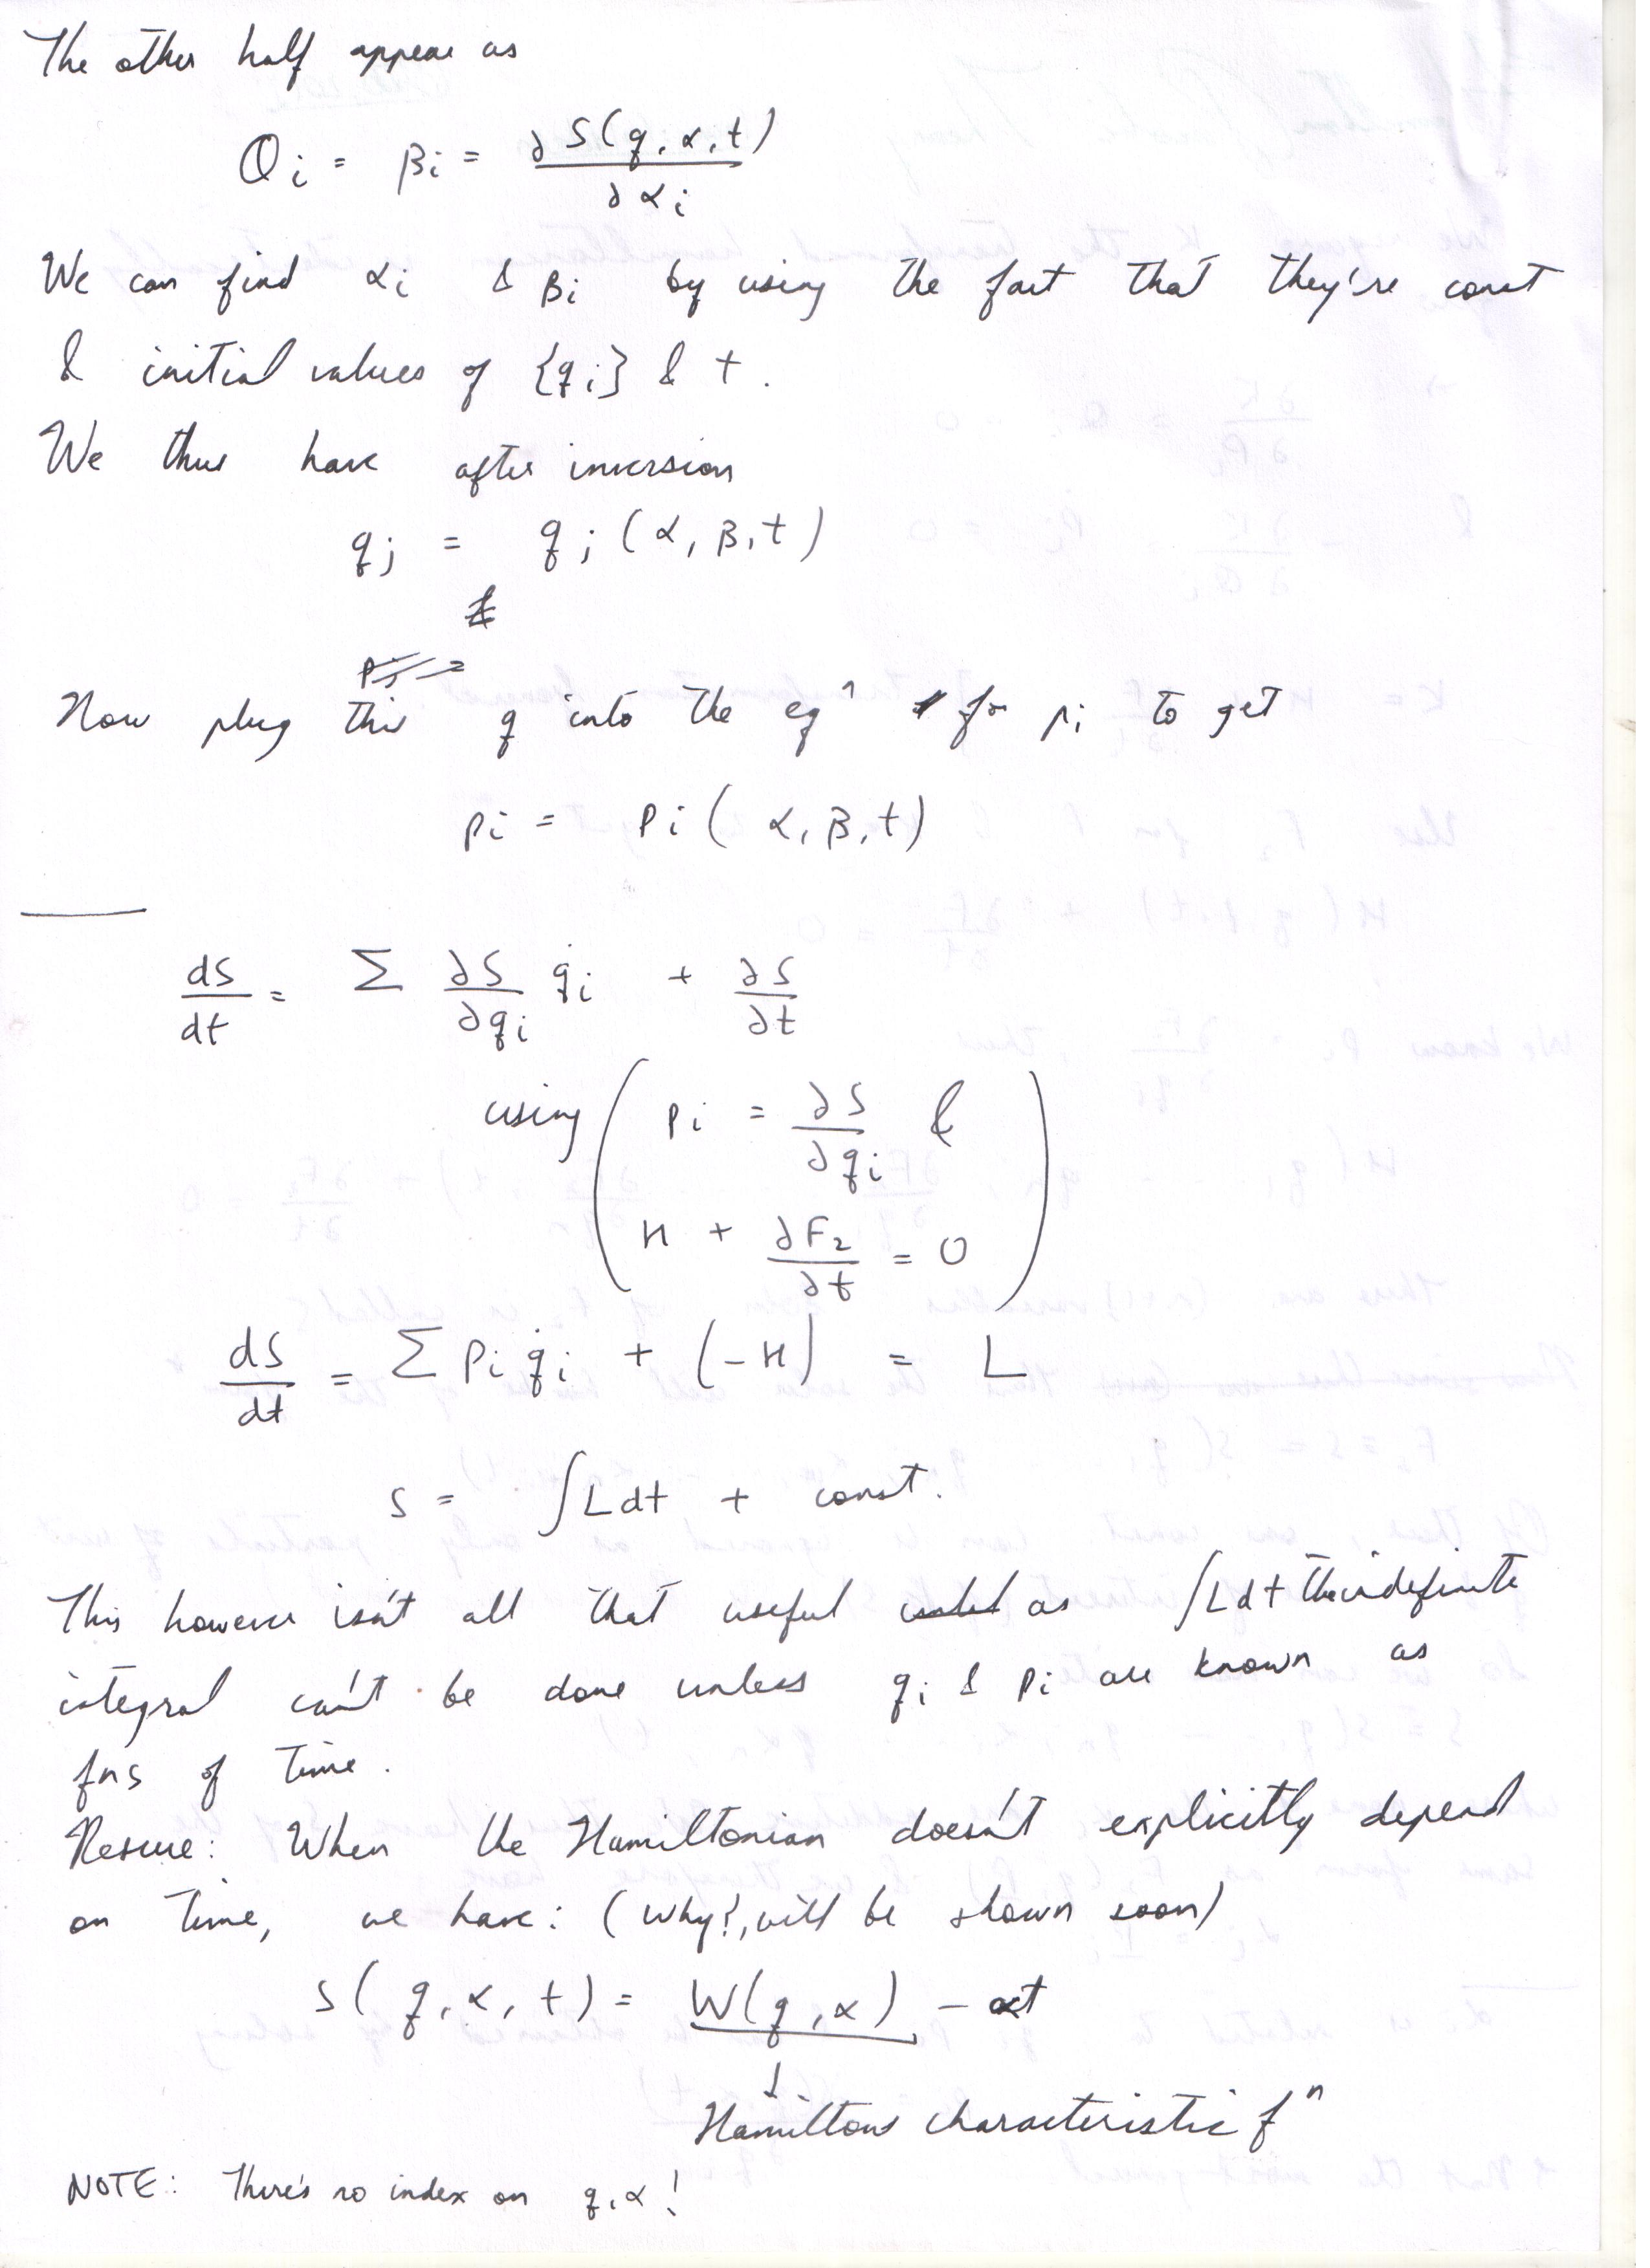 The other half appear as
Qi = βi = ∂S(q,α,t)/∂αi
We can find αi & βi by using the fact that they're const
& initial values of {qi} & t.
We thus have after inversion
qj = qj(α,β,t)
Now plug this q into the eqⁿ for pi to get
pi = pi(α,β,t)
dS/dt = Σ ∂S/∂qi q̇i + ∂S/∂t
using ( pi = ∂S/∂qi &
H + ∂F₂/∂t = 0 )
dS/dt = Σ pi q̇i + (-H) = L
S = ∫Ldt + const.
This however isn't all that useful as ∫Ldt the indefinite
integral can't be done unless qi & pi are known as
fns of time.
Rescue: When the Hamiltonian doesn't explicitly depend
on time, we have: (Why?, will be shown soon)
S(q,α,t) = W(q,α) - αt
↓
Hamiltons characteristic fⁿ
NOTE: There's no index on q,α!